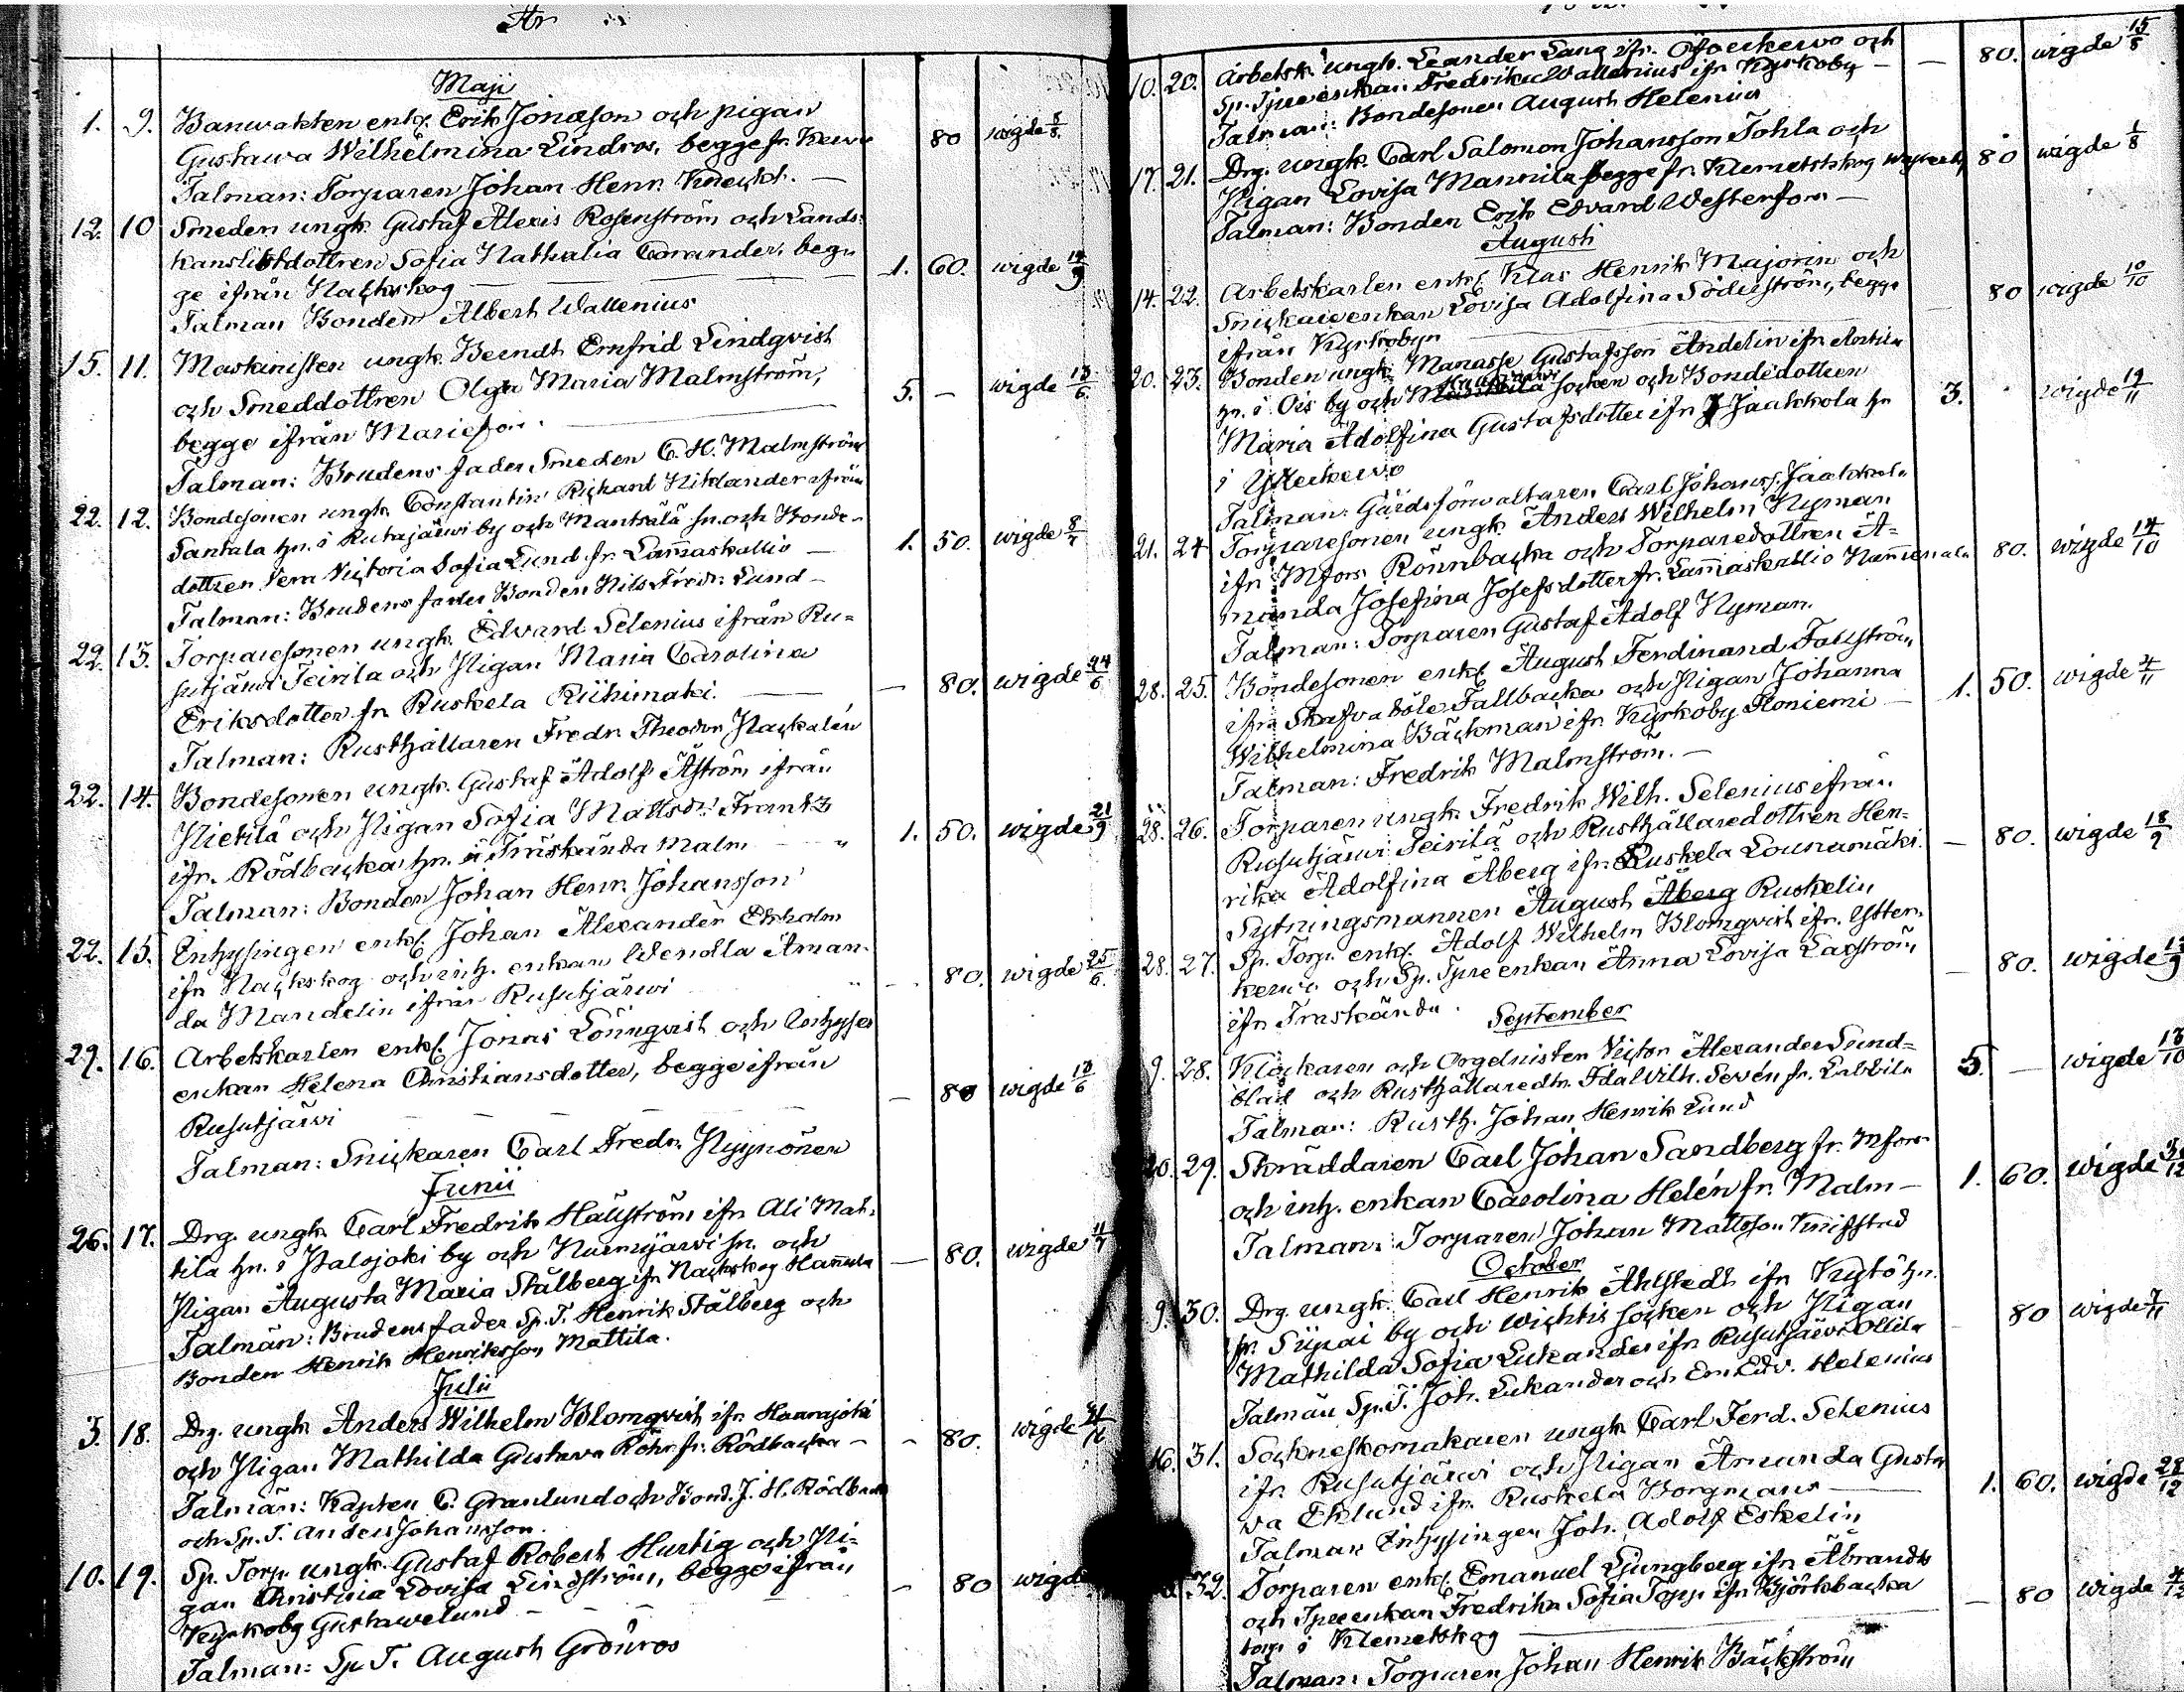 År
Maji
1. 9. Banvakten enkl. Erik Jonasson och pigan
Gustawa Wilhelmina Lindros, begge fr. Kervo 80 wigde 8/8
Talman: Torparen Johan Henr. —
12. 10 Smeden ungk. Gustaf Alexis Rosenström och Lands-
kanslistdottren Sofia Nathalia Corander, beg-
ge ifrån Nackskog — 1. 60. wigde 14/9
Talman Bonden Albert Wallenius
15. 11. Maskinisten ungk. Berndt Emfrid Lindqvist
och Smeddottren Olga Maria Malmström, 5. — wigde 13/6
begge ifrån Mariefors.
Talman: Brudens fader Smeden C. H. Malmström
22. 12. Bondesonen ungk. Constantin Richard Niklander ifrån
Santala hn. i Rutajärwi by och Mäntsälä sn. och Bonde-
dottren Vera Victoria Sofia Lund fr. Lammaskallio — 1. 50. wigde 8/7
Talman: Brudens fader Bonden Nils Fredr. Lund —
22. 13. Torparesonen ungk. Edvard Selenius ifrån Ru-
sutjärwi Teirilä och Pigan Maria Carolina
Eriksdotter fr. Ruskela Riihimäki. — 80. wigde 24/6
Talman: Rusthållaren Fredr. Theodor Nackalén
22. 14. Bondesonen ungk. Gustaf Adolf Åström ifrån
Pietilä och Pigan Sofia Mattsdr. Frantz
ifr. Rödbacka hn. i Träskända Malm — " 1. 50. wigde 21/9
Talman: Bonden Johan Henr. Johansson
22. 15. Inhysingen enkl. Johan Alexander Ekholm
ifr Nackskog och inh. enkan Wendla Aman-
da Mandelin ifrån Rusutjärwi " — 80. wigde 25/6
29. 16. Arbetskarlen enkl. Jonas Lönnqvist och Inhyses
enkan Helena Christiansdotter, begge ifrån
Rusutjärwi — — 80 wigde 18/6
Talman: Snickaren Carl Fredr. Nyynönen
Junii
26. 17. Drg. ungk. Carl Fredrik Hällström ifr. Ali Mat-
tila hn. i Palojoki by och Nurmijärwi sn. och
Pigan Augusta Maria Stålberg ifr. Nackskog Hannula — 80. wigde 11/7
Talmän: Brudens fader Sp. T. Henrik Stålberg och
Bonden Henrik Henriksson Mattila.
Julii
3. 18. Drg. ungk Anders Wilhelm Blomqvist ifr. Haarajoki
och Pigan Mathilda Gustava Röhr fr. Rödbacka — — 80. wigde
Talmän: Kapten C. Granlund och Bond. J. H. Rödbacka
och Sp. T. Anders Johansson.
10. 19. Sp. Torp. ungk. Gustaf Robert Hurtig och Pi-
gan Christina Lovisa Lindström, begge ifrån
Kyrkoby Gustawelund — — 80 wigde
Talman: Sp. T. August Grönros
10. 20. Arbetsk. ungk. Leander Lang ifr. och
Sp. Tpareenkan Fredrika Wallenius ifr Kyrkoby — — 80. wigde 15/8
Talman: Bondesonen August Helenius
17. 21. Drg. ungk. Carl Salomon Johansson Tohla och
Pigan Lovisa Mannila begge fr. Klemetskog 80 wigde 1/8
Talman: Bonden Erik Edvard Westerfors —
Augusti
14. 22. Arbetskarlen enkl. Klas Henrik Majorin och
Snickareenkan Lovisa Adolfina Söderström, begge
ifrån Kyrkobyn 80 wigde 10/10
20. 23. Bonden ungk. Manasse Gustafsson Andelin ifr.
hn. i Ois by och socken och Bondedottren
Maria Adolfina Gustafsdotter ifr Jaakkola hn 3. wigde 19/11
i Ytterkervo
Talman: Gårdsförvaltaren Carl Johanss. Jaakkola
21. 24 Torparesonen ungk. Anders Wilhelm Nyman
ifr. Mfors Rönnbacka och Torparedottren A-
manda Josefina Josefsdotter fr. Lammaskallio 80. wigde 14/10
Talman: Torparen Gustaf Adolf Nyman.
28. 25. Bondesonen enkl. August Ferdinand Fallström,
ifrn Skafvaböle Fallbacka och Pigan Johanna
Wilhelmina Bäckman ifr. Kyrkoby Floniemi — 1. 50. wigde 4/11
Talman: Fredrik Malmström. —
28. 26. Torparen ungk. Fredrik Wilh. Selenius ifrån
Rusutjärwi Teirilä och Rusthållaredottren Hen-
rika Adolfina Åberg ifr. Ruskela Lounamäki. — 80. wigde 18/9
Sytningsmannen August Åberg Ruskelin
28. 27. Sp. Torp. enkl. Adolf Wilhelm Blomqvist ifr. Ytter-
kervo och Sp. Tpareenkan Anna Lovisa Laxström, — 80. wigde
ifr Träskända.
September
9. 28. Klockaren och Orgelnisten Victor Alexander Sund-
blad och Rusthållaredtr. Ida Wilh. Seven fr. Labbila 5. — wigde
Talman: Rusth. Johan Henrik Lund
20. 29. Skräddaren Carl Johan Sandberg fr. Mfors
och inh. enkan Carolina Helén fr. Malm — 1. 60. wigde
Talman: Torparen Johan Mattsson
October
9. 30. Drg. ungk. Carl Henrik Åhlstedt ifr. Kytö hn.
fr. Siipai by och Wichtis socken och Pigan
Mathilda Sofia Lukander ifr Rusutjärwi Ollila 80 wigde 7/11
Talmän Sp. T. Joh. Lukander och Em. Edv. Helenius
16. 31. Sockneskomakaren ungk. Carl Ferd. Selenius
ifr. Rusutjärwi och Pigan Amanda Gusta-
va Eklund ifr. Ruskela Borgmans — 1. 60. wigde 28/12
Talman Inhysingen Joh. Adolf Eskelin
32. Torparen enkl. Emanuel Ljungberg ifr Åbrandts
och Tpareenkan Fredrika Sofia Topp ifr Björkbacka
torp i Klemetskog — 80 wigde
Talman: Torparen Johan Henrik Bäckström